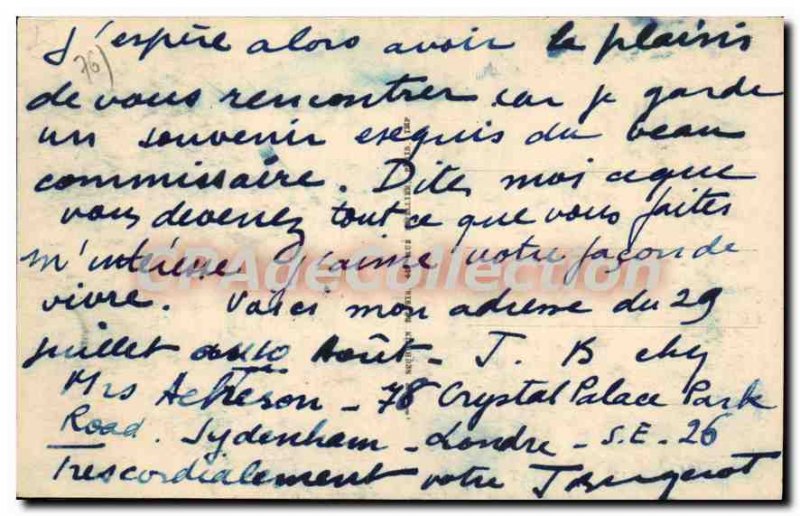 J'espère alors avoir le plaisir
76)
de vous rencontrer car je garde
un souvenir exquis du beau
commissaire. Dites moi ce que
vous devenez tout ce que vous faites
m'intéresse J'aime votre façon de
vivre. Voici mon adresse du 29
juillet au 10 Août - J. B chez
Mrs Acheson - 78 Crystal Palace Park
Road. Sydenham - Londre - S.E - 26
Tres cordialement votre
CPAdeCollection